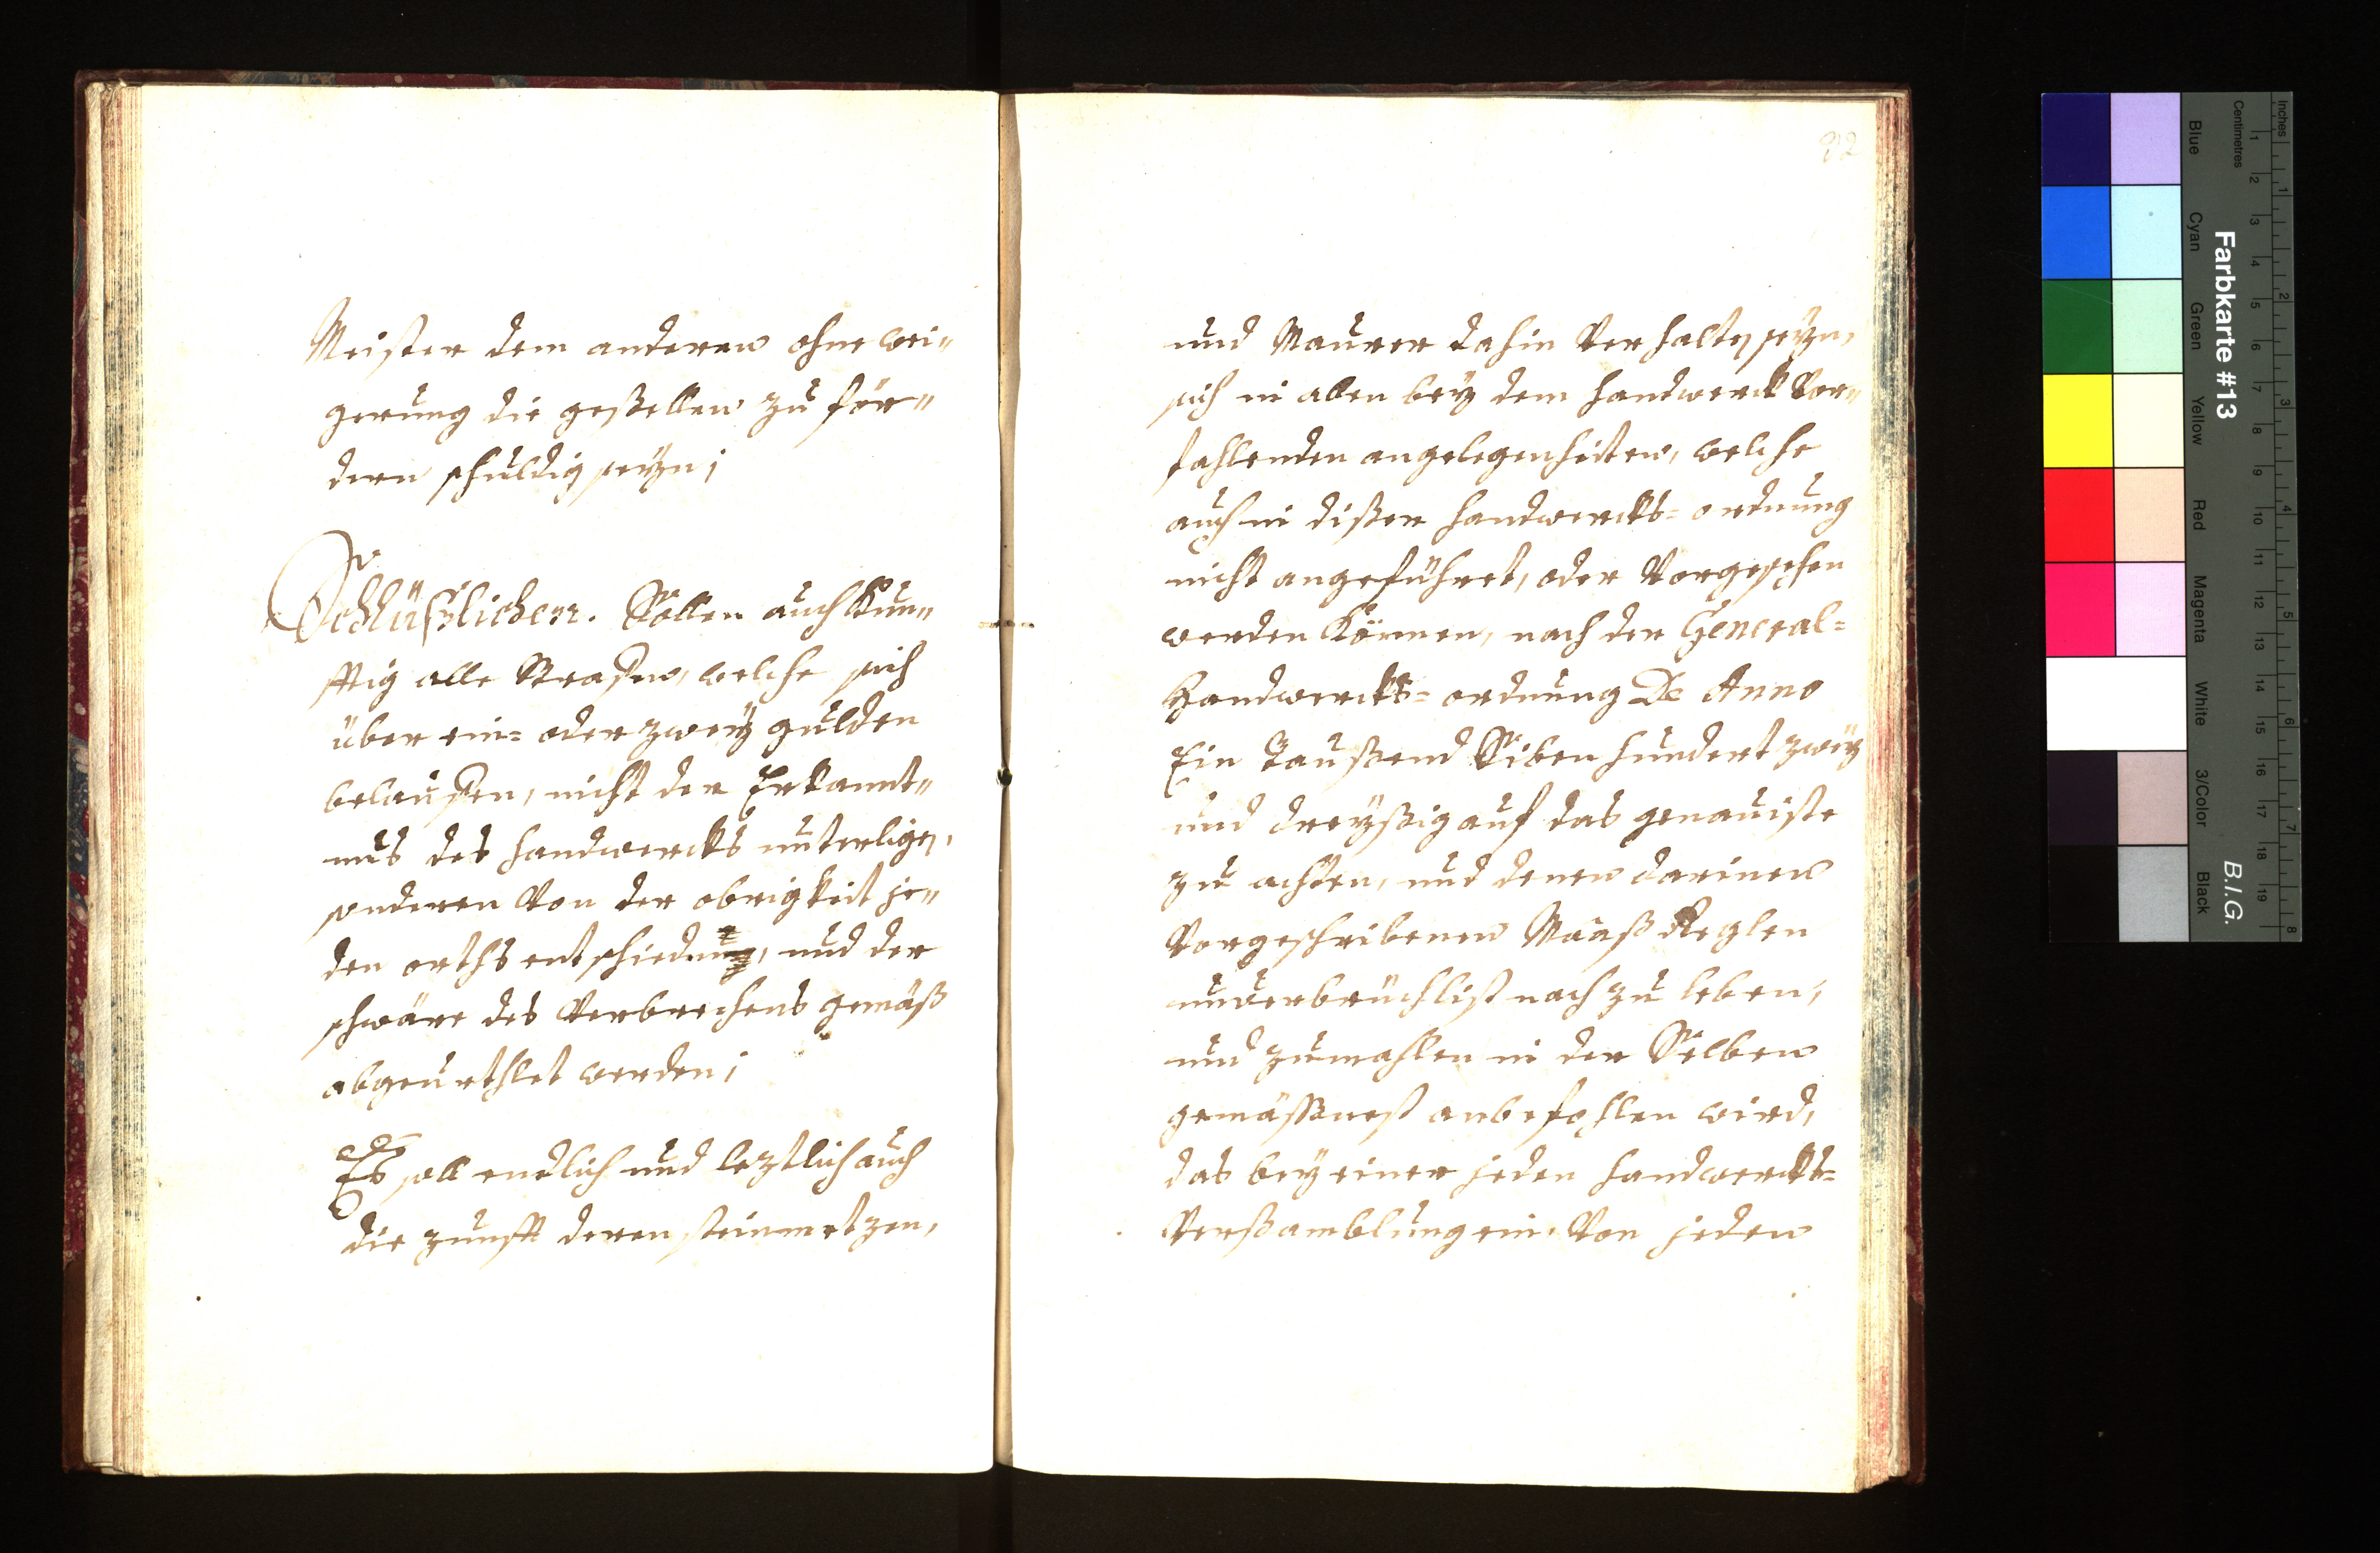 Meister dem anderen ohne wei„
gerung die geßellen zu för„
dern schuldig seyn;
Schlüßlichen. Sollen auch Kün„
fftig alle Strafen, welche sich
über ein= oder zwey gulden
belaufen, nicht der Erkannt„
nus des handwercks unterligen,
sonderen Von der obrigkeit je„
den orths entschieden, und der
schwäre des Verbrechens gemäß
abgeurthlet werden;
Es soll endlich und leztlich auch
die zunfft deren steinmetzen,
22
und Maurer dahin Verhalten seyn,
sich in allen bey dem handwerck Vor„
fahlenden angelegenheiten, welche
auch in dißer handwercks=ordnung
nicht angeführet, oder Vorgesehen
werden Können, nach der General=
Handwercks=ordnung De Anno
Ein Taußend Siben hundert zwey
und dreyßig auf das genauiste
zu achten, und denen darinen
Vorgeschribenen Maaß Reglen
unverbrüchlich nach zu leben,
und zumahlen in der Selben
gemäßnest anbefohlen wird,
das bey einer jeden handwercks=
Verßamblung ein. Von jeden
Inches
Centimetres
1 2 3 4 5 6 7 8
1 2 3 4 5 6 7 8 9 10 11 12 13 14 15 16 17 18 19
Farbkarte #13
B.I.G.
Blue
Cyan
Green
Yellow
Red
Magenta
White
3/Color
Black